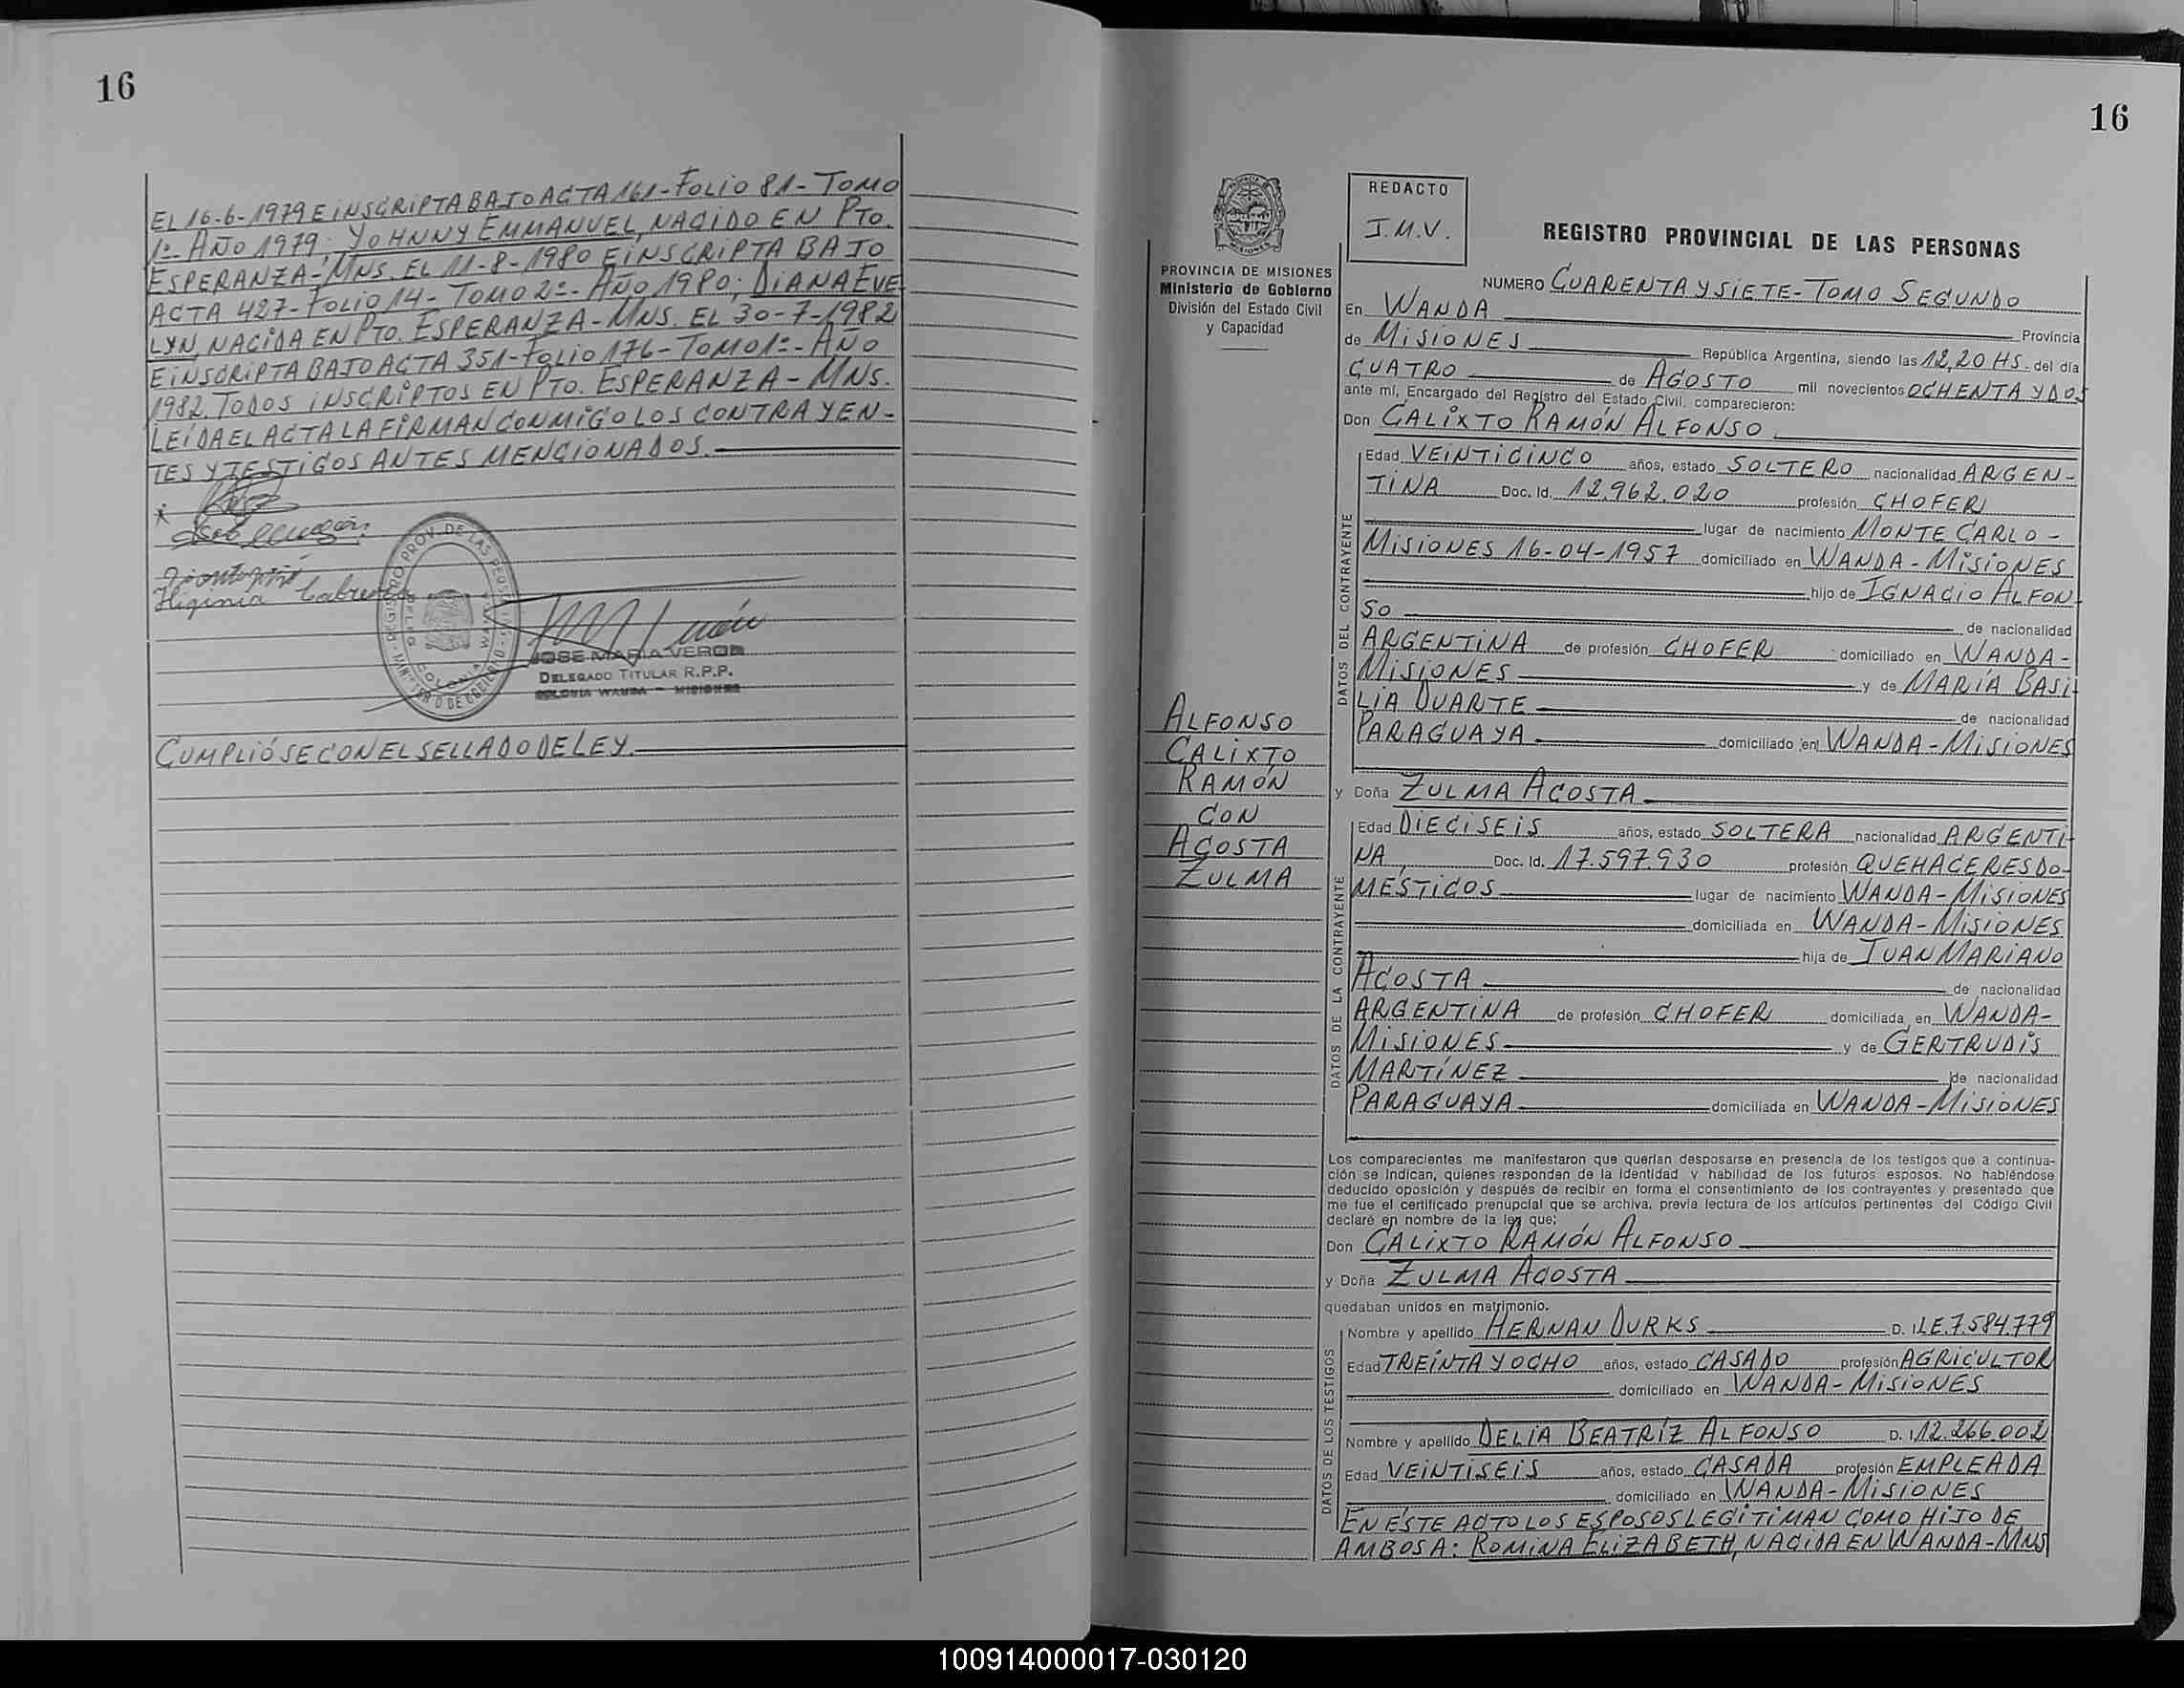 16
EL 16-6-1979 E INSCRIPTA BAJO ACTA 161-FOLIO 81-TOMO
1º-AÑO 1979; YOHNNY EMMANUEL, NACIDO EN PTO.
ESPERANZA-MNS. EL 11-8-1980 E INSCRIPTA BAJO
ACTA 427-FOLIO 14-TOMO 2º-AÑO 1980; DIANA EVE
LYN, NACIDA EN PTO. ESPERANZA-MNS. EL 30-7-1982
E INSCRIPTA BAJO ACTA 351-FOLIO 176-TOMO 1º-AÑO
1982. TODOS INSCRIPTOS EN PTO. ESPERANZA-MNS.
LEÍDA EL ACTA LA FIRMAN CONMIGO LOS CONTRAYEN-
TES Y TESTIGOS ANTES MENCIONADOS.
Higinia Cabrera
JOSE MARIA VERON
DELEGADO TITULAR R.P.P.
COLONIA WANDA - MISIONES
CUMPLIÓSE CON EL SELLADO DE LEY.
16
PROVINCIA DE MISIONES
Ministerio de Gobierno
División del Estado Civil
y Capacidad
REDACTO
I.M.V.
REGISTRO PROVINCIAL DE LAS PERSONAS
ALFONSO
CALIXTO
RAMÓN
CON
ACOSTA
ZULMA
NUMERO CUARENTA Y SIETE-TOMO SEGUNDO
En WANDA Provincia
de MISIONES República Argentina, siendo las 12,20 HS. del día
CUATRO de AGOSTO mil novecientos OCHENTA Y DOS
ante mí, Encargado del Registro del Estado Civil, comparecieron:
Don CALIXTO RAMÓN ALFONSO
DATOS DEL CONTRAYENTE
Edad VEINTICINCO años, estado SOLTERO nacionalidad ARGEN-
TINA Doc. Id. 12.962.020 profesión CHOFER
lugar de nacimiento MONTE CARLO-
MISIONES 16-04-1957 domiciliado en WANDA-MISIONES
hijo de IGNACIO ALFON
SO de nacionalidad
ARGENTINA de profesión CHOFER domiciliado en WANDA-
MISIONES y de MARÍA BASI
LIA DUARTE de nacionalidad
PARAGUAYA domiciliado en WANDA-MISIONES
y Doña ZULMA ACOSTA
DATOS DE LA CONTRAYENTE
Edad DIECISEIS años, estado SOLTERA nacionalidad ARGENTI
NA Doc. Id. 17.597.930 profesión QUEHACERES DO-
MÉSTICOS lugar de nacimiento WANDA-MISIONES
domiciliada en WANDA-MISIONES
hija de JUAN MARIANO
ACOSTA de nacionalidad
ARGENTINA de profesión CHOFER domiciliada en WANDA-
MISIONES y de GERTRUDIS
MARTÍNEZ de nacionalidad
PARAGUAYA domiciliada en WANDA-MISIONES
Los comparecientes me manifestaron que querían desposarse en presencia de los testigos que a continua-
ción se indican, quienes responden de la identidad y habilidad de los futuros esposos. No habiéndose
deducido oposición y después de recibir en forma el consentimiento de los contrayentes y presentado que
me fue el certificado prenupcial que se archiva, previa lectura de los artículos pertinentes del Código Civil
declaré en nombre de la ley que:
Don CALIXTO RAMÓN ALFONSO
y Doña ZULMA ACOSTA
quedaban unidos en matrimonio.
DATOS DE LOS TESTIGOS
Nombre y apellido HERNAN DURKS D. I. L.E.7.584.779
Edad TREINTA Y OCHO años, estado CASADO profesión AGRICULTOR
domiciliado en WANDA-MISIONES
Nombre y apellido DELIA BEATRÍZ ALFONSO D. I. 12.266.002
Edad VEINTISEIS años, estado CASADA profesión EMPLEADA
domiciliado en WANDA-MISIONES
EN ÉSTE ACTO LOS ESPOSOS LEGITIMAN COMO HIJO DE
AMBOS A: ROMINA ELIZABETH, NACIDA EN WANDA-MNS
100914000017-030120